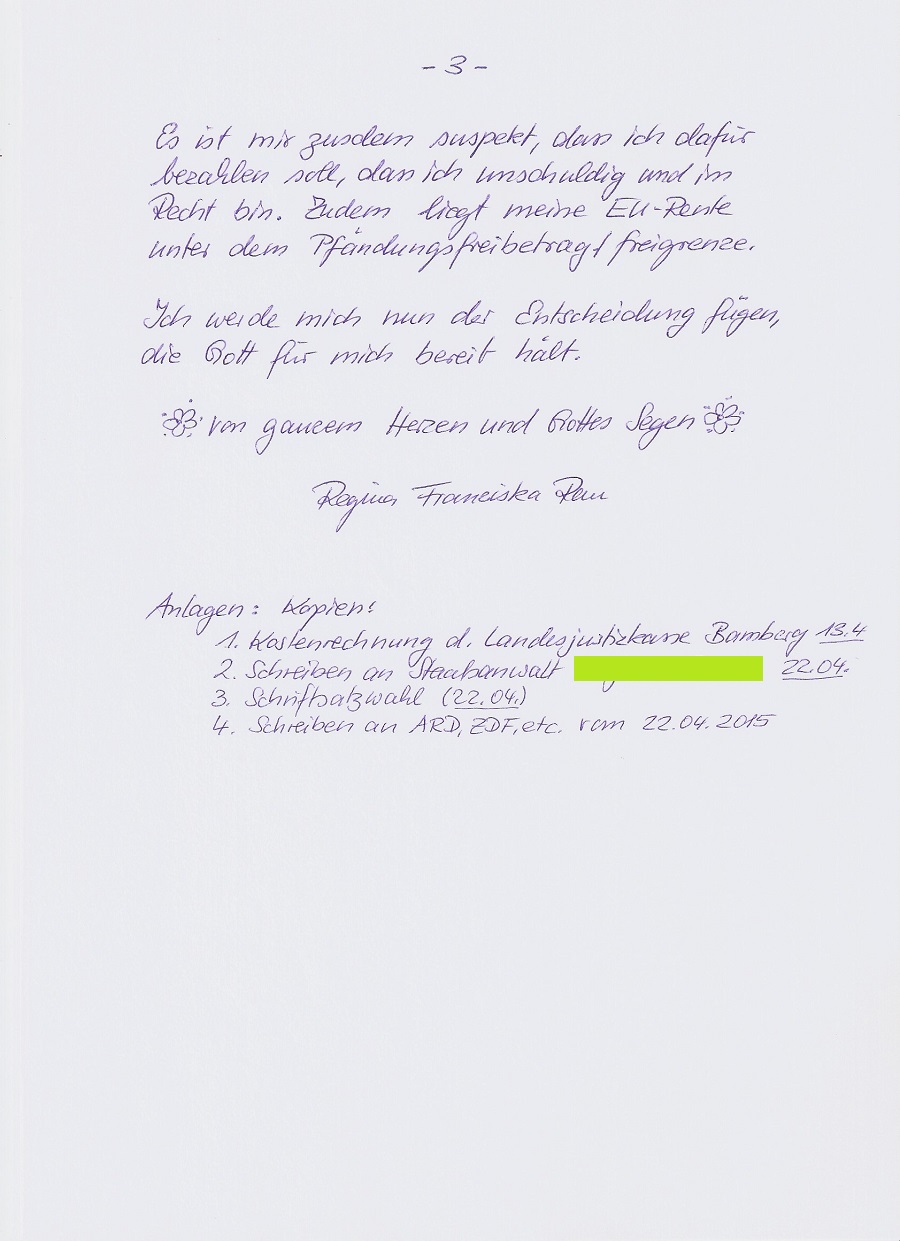 - 3 -
Es ist mir zusdem suspekt, dass ich dafür
bezahlen soll, dass ich unschuldig und im
Recht bin. Zudem liegt meine EU-Rente
unter dem Pfändungsfreibetrag/freigrenze.
Ich werde mich nun der Entscheidung fügen,
die Gott für mich bereit hält.
von ganzem Herzen und Gottes Segen
Regina Franziska Rau
Anlagen: Kopien:
1. Kostenrechnung d. Landesjustizkasse Bamberg 13.4
2. Schreiben an Staatsanwalt 22.04.
3. Schriftsatzwahl (22.04.)
4. Schreiben an ARD, ZDF, etc. vom 22.04.2015